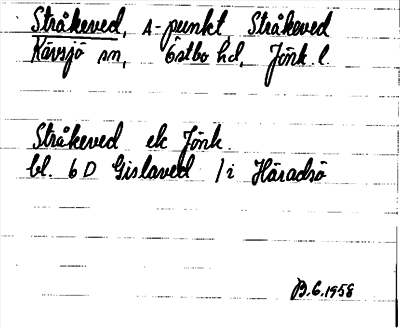 Stråkeved, A-punkt, Stråkeved
Kävsjö sn, Östbo hd, Jönk. l.
Stråkeved ek Jönk.
bl. 6D Gislaved 1i Häradsö
B.G. 1958